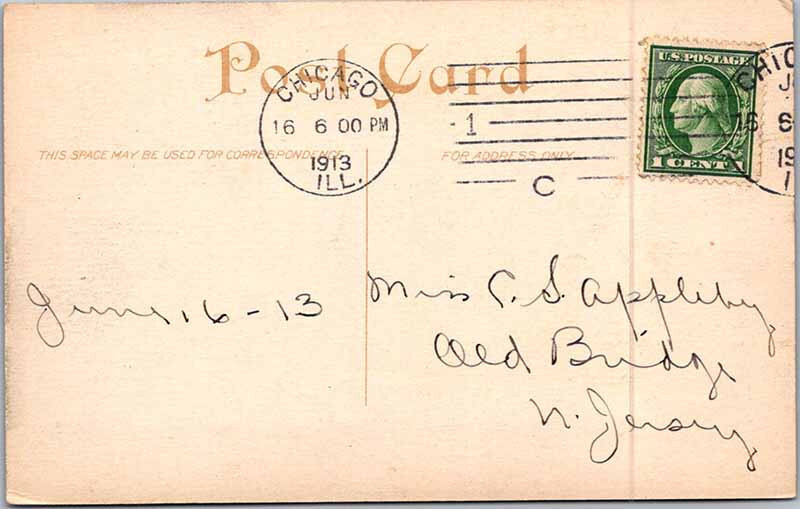 Post Card
CHICAGO
JUN
16 6 00 PM
1913
ILL.
1
C
U.S. POSTAGE
1 CENT 1
CHIC
J
16 6
19
I
THIS SPACE MAY BE USED FOR CORRESPONDENCE
FOR ADDRESS ONLY
June 16 - 13
Miss C. S. Appleby,
Old Bridge
N. Jersey,